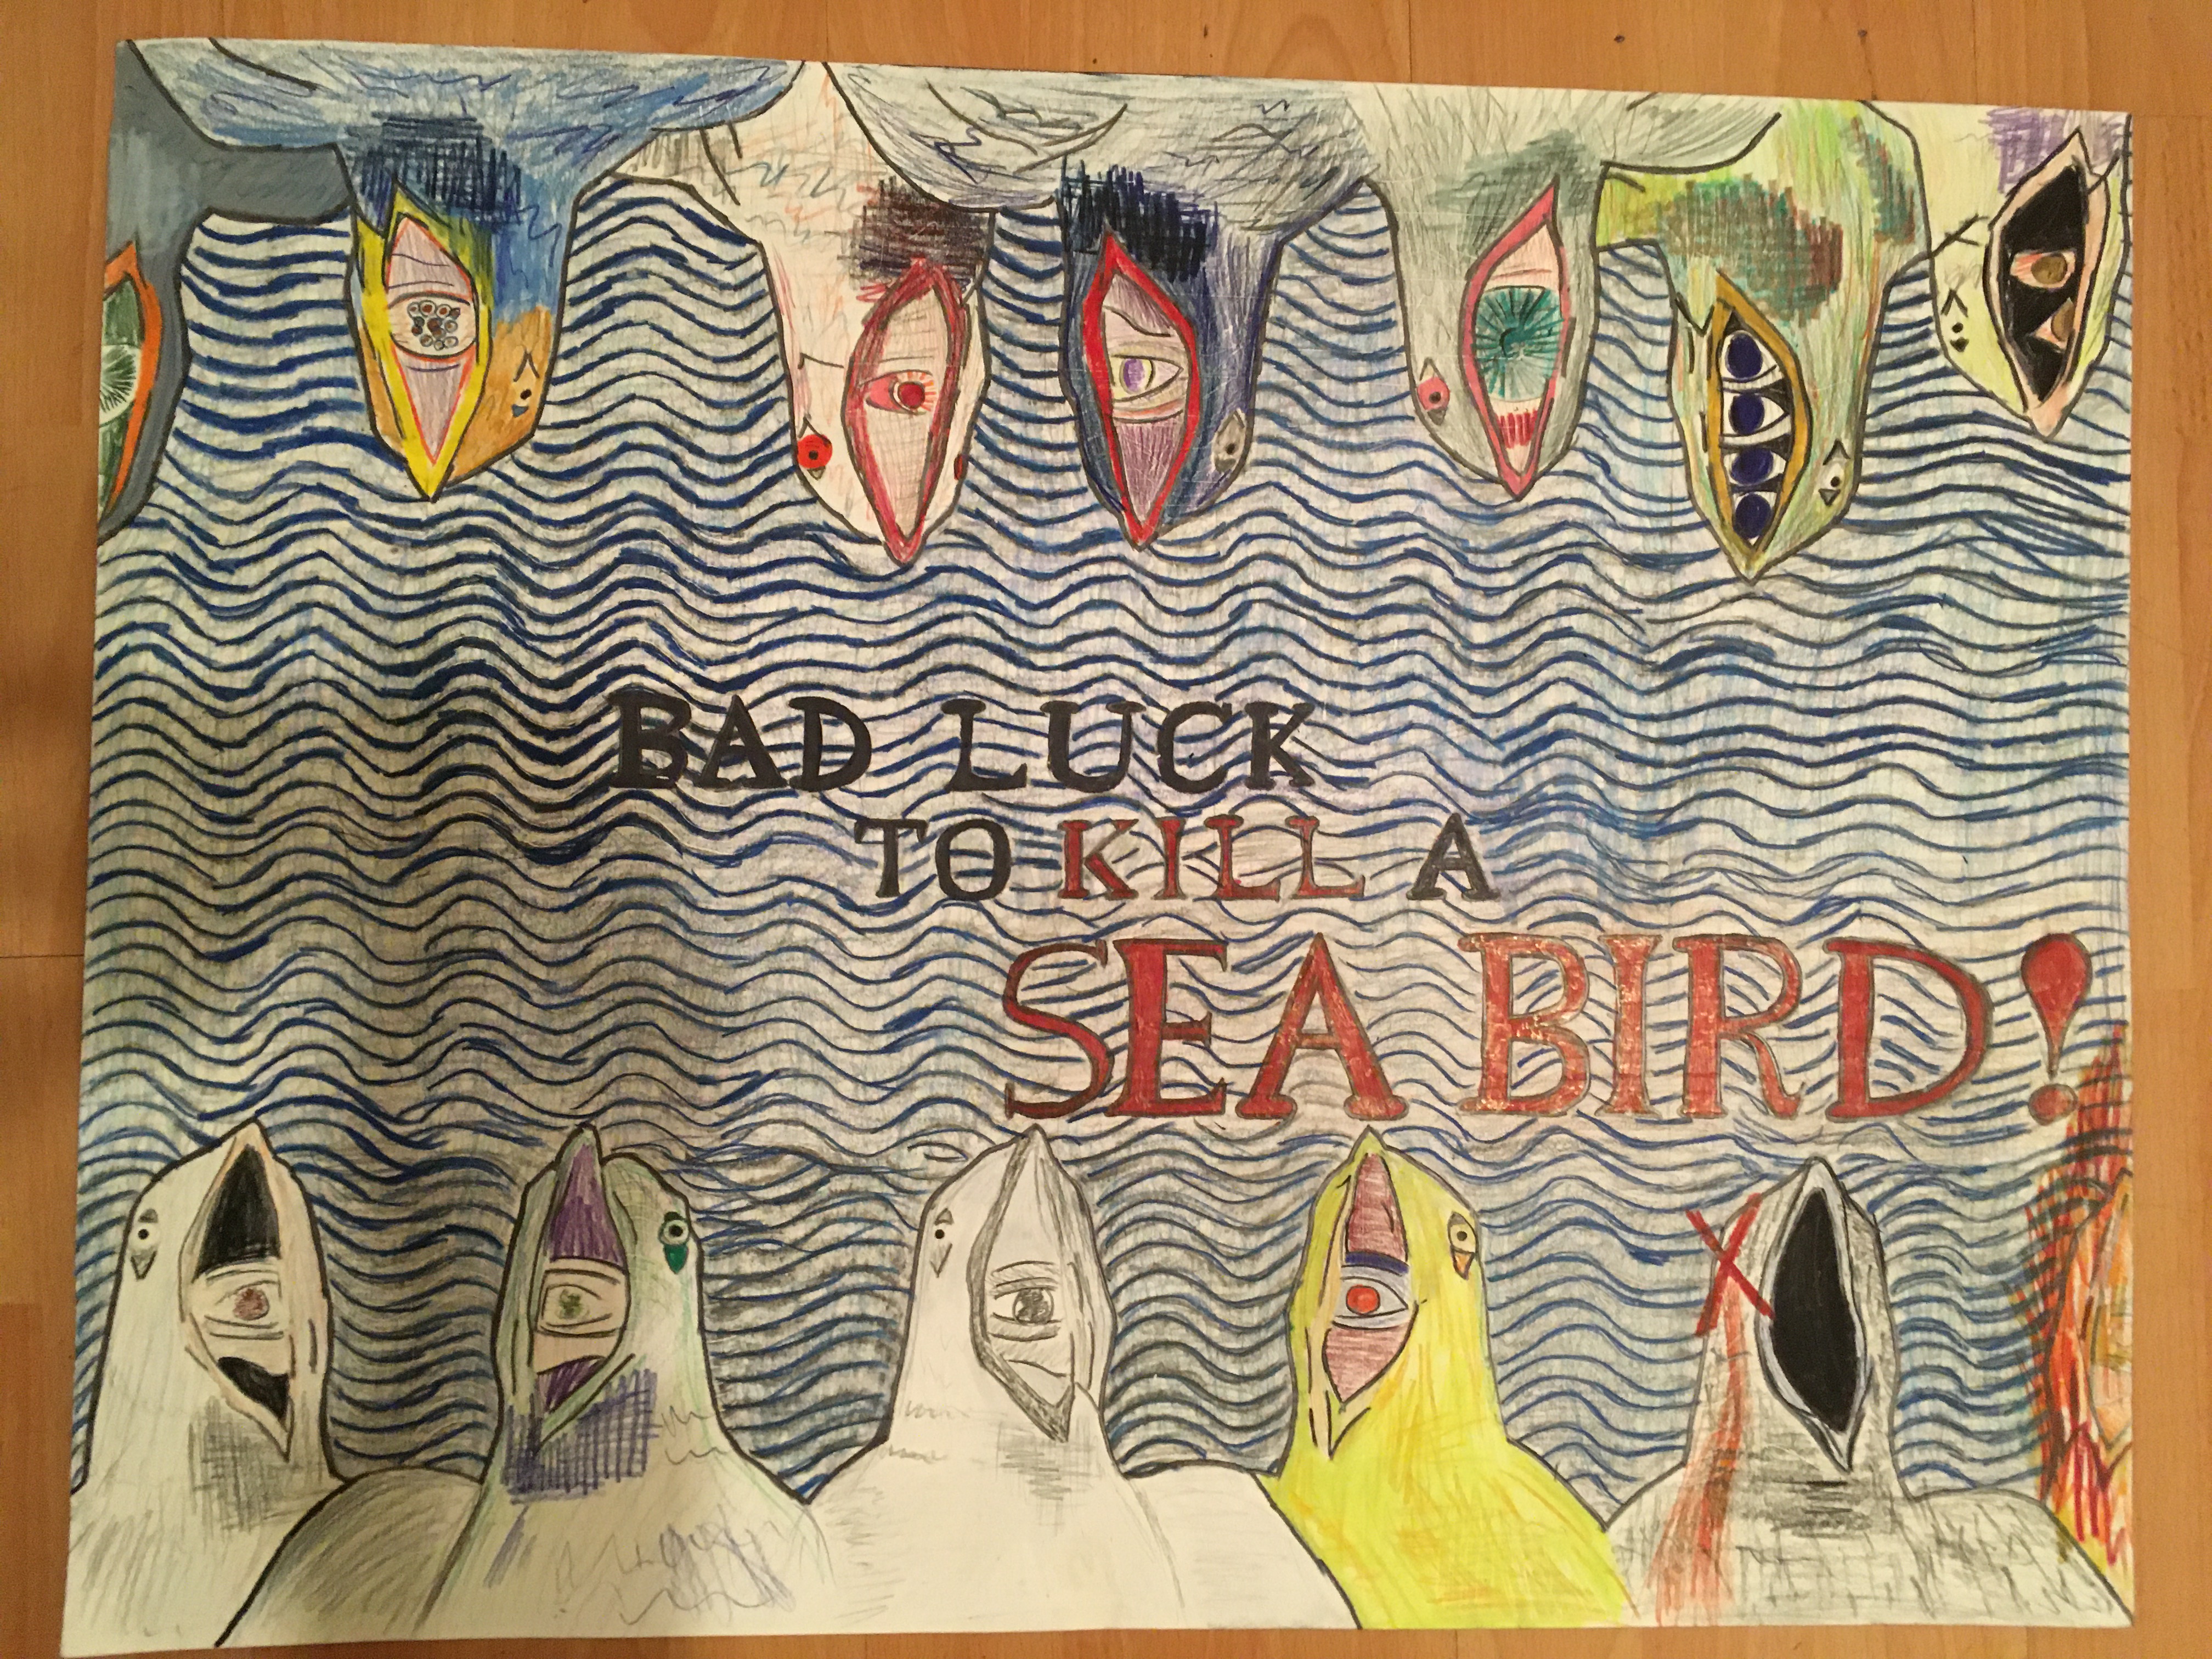 BAD LUCK
TO KILL A
SEA BIRD!